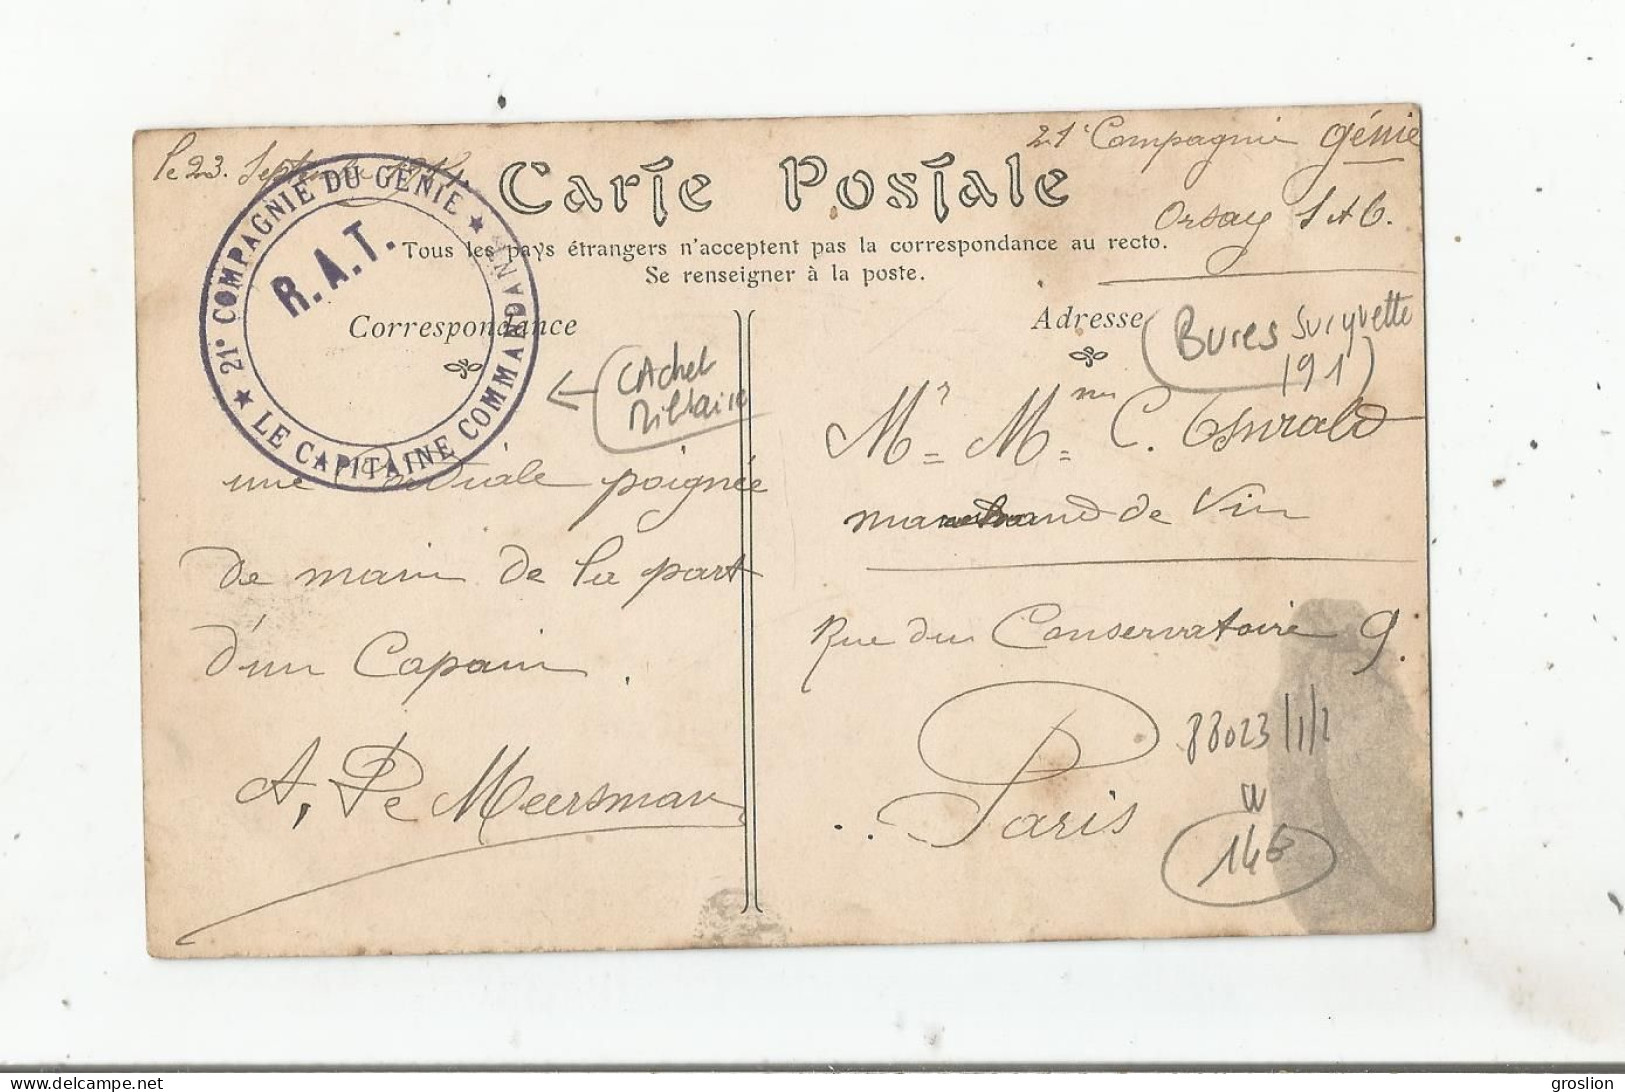 le 23. Septembre 1914.
21e Compagnie génie
Orsay S & O.
Carte Postale
Tous les pays étrangers n'acceptent pas la correspondance au recto.
Se renseigner à la poste.
★ 21e COMPAGNIE DU GÉNIE ★
LE CAPITAINE COMMANDANT
R.A.T.
Correspondance
Adresse
(Bures sur yvette
191)
← (CAchet
Militaire
une cordiale poignée
de main de la part
d'un Copain.
A. De Meersman
Mr = Mme = C. Oswald
marchand de Vin
Rue du Conservatoire 9.
Paris
88023/1/2
W
14E
groslion